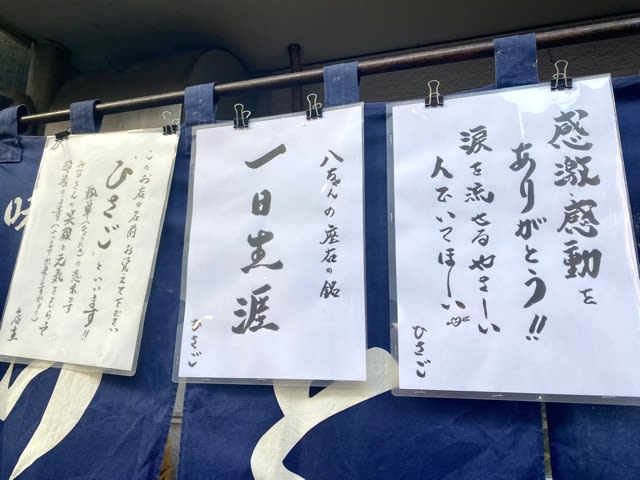 感激・感動を
ありがとう!!
涙を流せるやさしい
人でいてほしい
ひさご
八ちゃんの座右の銘
一日生涯
ひさご
このお店の名前お覚え下さい
ひさご
といいます!!
みなさんの笑顔と元気をもらって